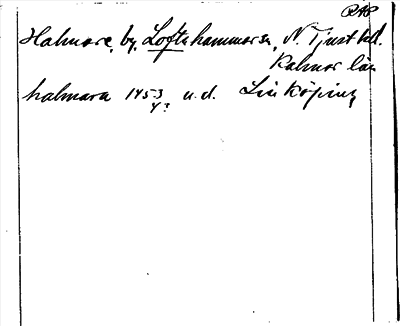 RAP
Halmare, by, Loftahammar sn, N. Tjust hd.
Kalmar län
halmara 1453 u.d. Linköping
4/3